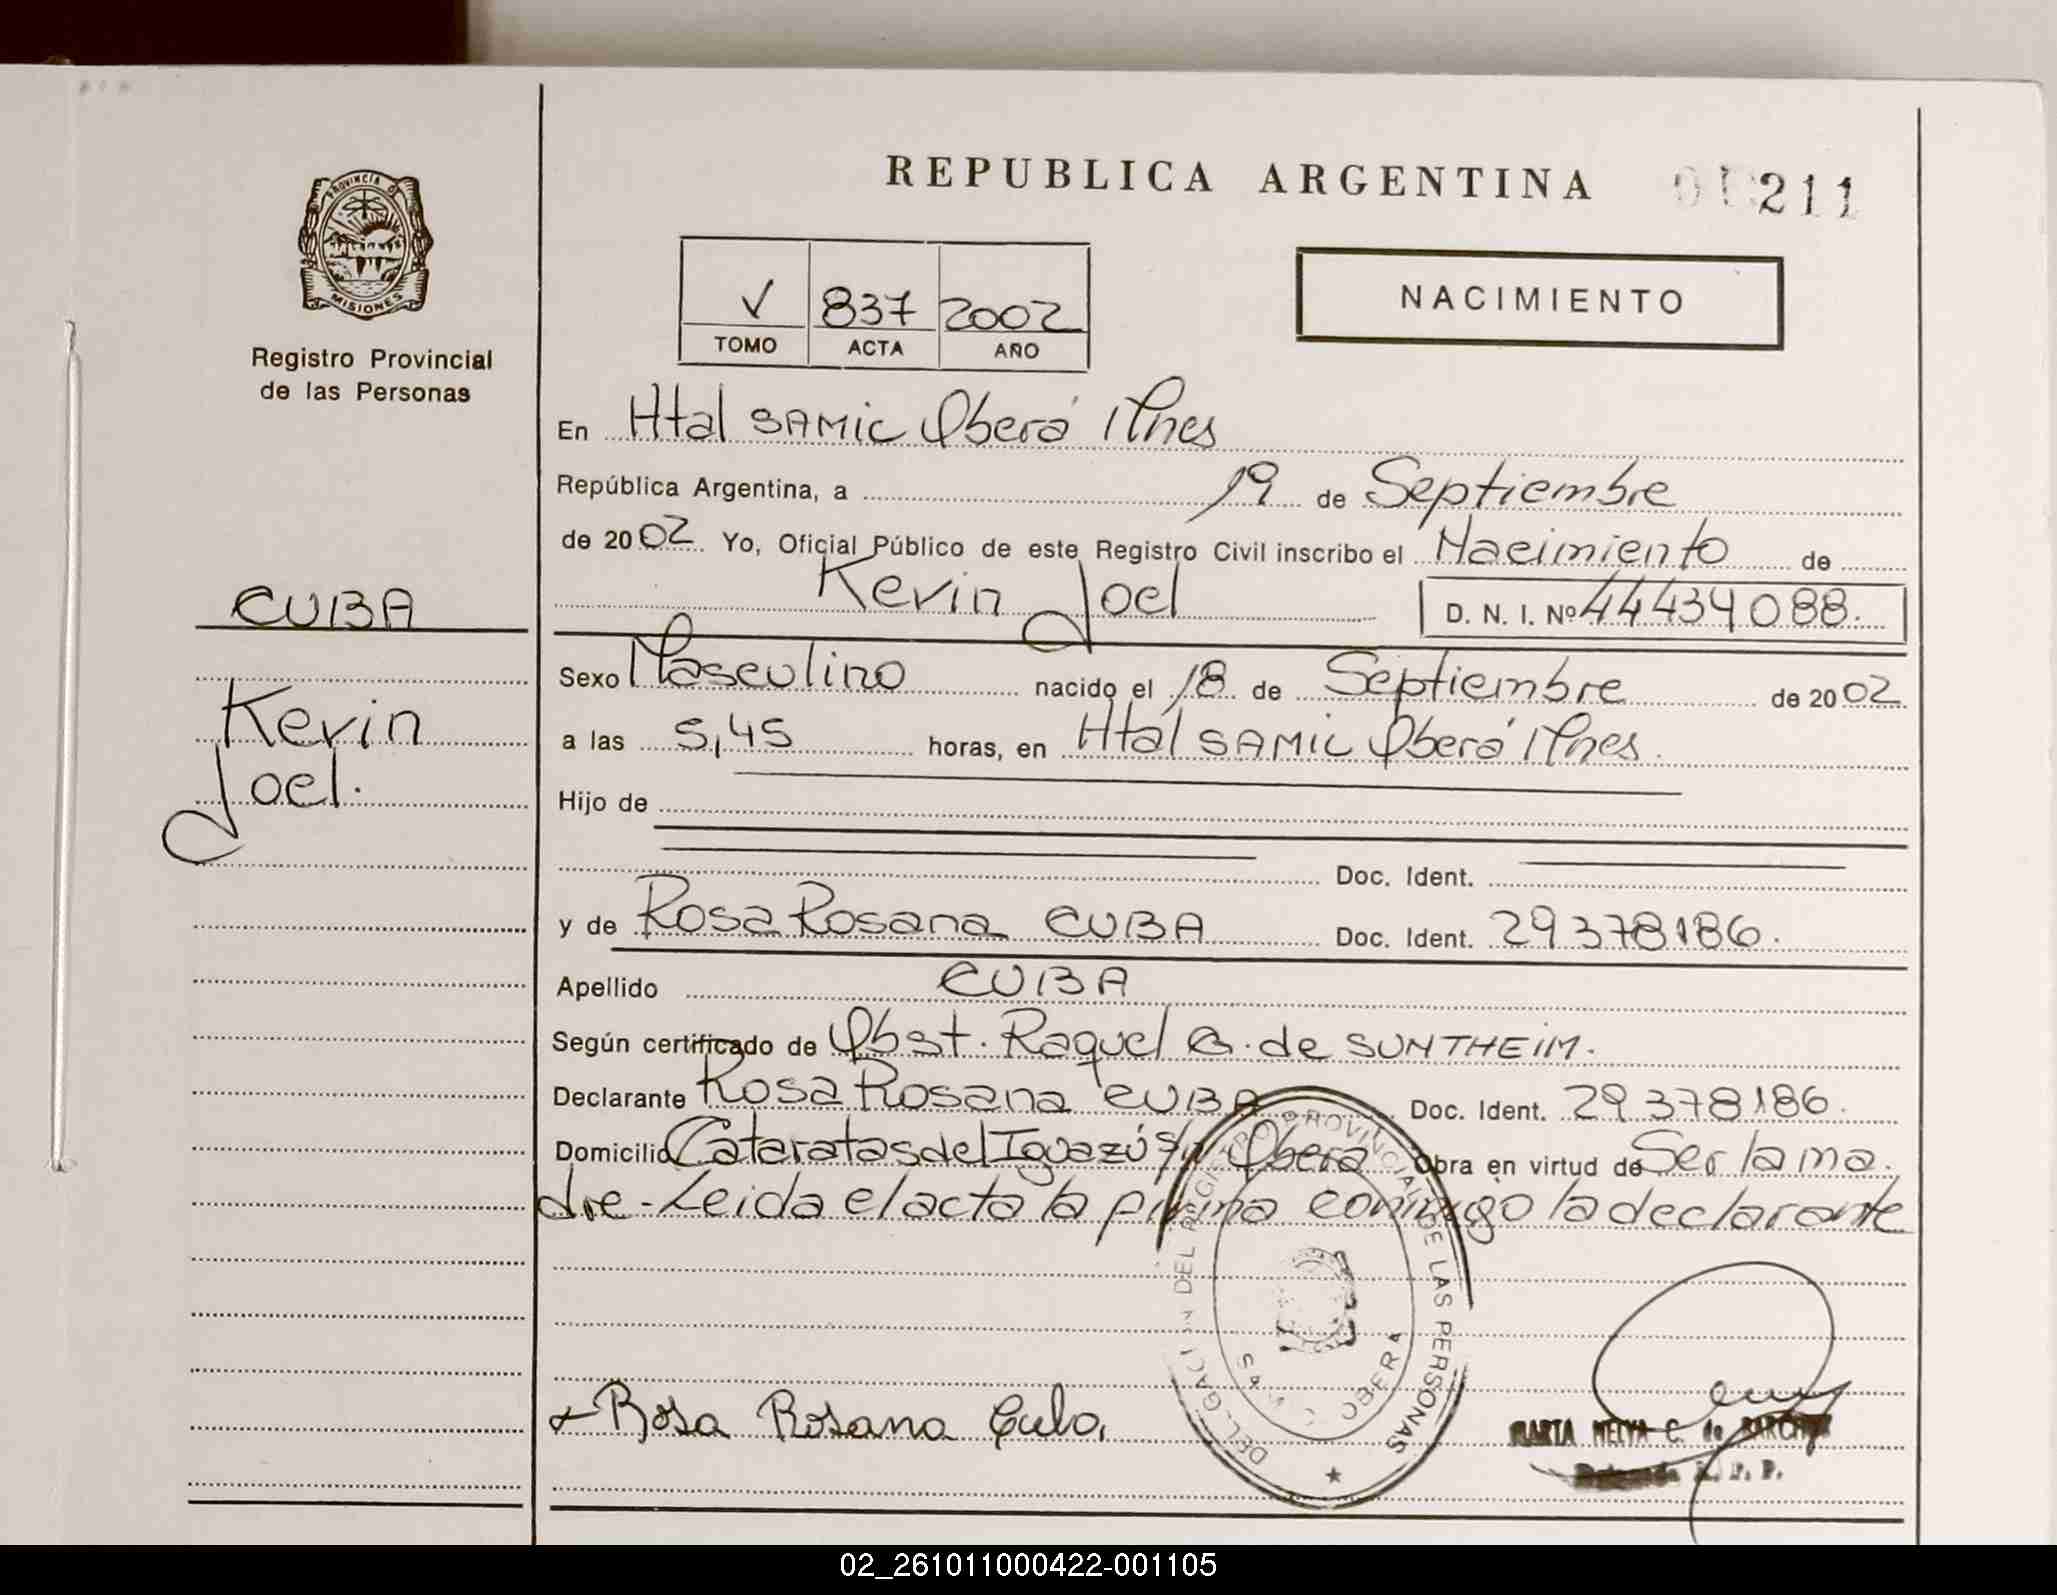 REPUBLICA ARGENTINA 211
PROVINCIA DE
MISIONES
Registro Provincial
de las Personas
NACIMIENTO
V 837 2002
TOMO ACTA AÑO
En Htal SAMIC Oberá Mnes
República Argentina, a 19 de Septiembre
de 2002 Yo, Oficial Público de este Registro Civil inscribo el Nacimiento de
Kevin Joel D. N. I. Nº 44434088.
CUBA
Kevin
Joel.
Sexo Masculino nacido el 18 de Septiembre de 2002
a las 5,45 horas, en Htal SAMIC Oberá Mnes.
Hijo de
Doc. Ident.
y de Rosa Rosana CUBA Doc. Ident. 29378186.
Apellido CUBA
Según certificado de Obst. Raquel G. de SUNTHEIM.
Declarante Rosa Rosana CUBA Doc. Ident. 29378186.
Domicilio Cataratas del Iguazú S/n Oberá Obra en virtud de Ser la ma.
dre - Leida el acta la firma conmigo la declarante
DELEGACION DEL REGISTRO PROVINCIAL DE LAS PERSONAS
OBERA
Rosa Rosana Cuba
MARTA MELVA C. de
Delegada R. P. P.
02_261011000422-001105